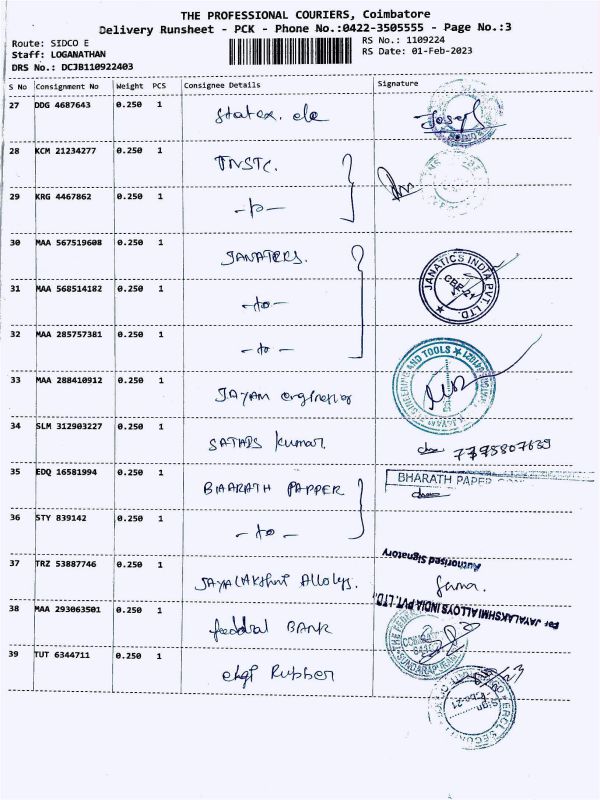 THE PROFESSIONAL COURIERS, Coimbatore
Delivery Runsheet - PCK - Phone No.:0422-3505555 - Page No.:3
Route: SIDCO E
Staff: LOGANATHAN
DRS No.: DCJB110922403
RS No.: 1109224
RS Date: 01-Feb-2023
S No Consignment No Weight PCS Consignee Details Signature
27 DDG 4687643 0.250 1 Statex. ele Joseph
28 KCM 21234277 0.250 1 TNSTC.
29 KRG 4467862 0.250 1
30 MAA 567519608 0.250 1
JANATICS INDIA PVT. LTD.
CBE-21
31 MAA 568514182 0.250 1 -to-
32 MAA 285757381 0.250 1 -to-
33 MAA 288410912 0.250 1 JAYAM
AND TOOLS
34 SLM 312903227 0.250 1 Kumar.
35 EDQ 16581994 0.250 1 BHARATH PAPPER
BHARATH PAPER
36 STY 839142 0.250 1 -to-
Authorised Signatory
37 TRZ 53887746 0.250 1 JAYALAKshmi Alloys.
For JAYALAKSHMI ALLOYS INDIA PVT. LTD.,
38 MAA 293063501 0.250 1 feddral BANK
THE FEDERAL
39 TUT 6344711 0.250 1 elgi Rubber